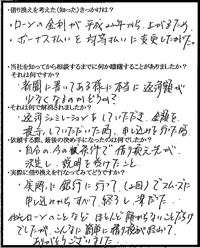 ・借り換えを考えた(知った)きっかけは?
・ローンの金利が平成22年から、上がるため。
・ボーナス払いを均等払いに変更したかった。
・当社を知ってから相談するまでに何か躊躇することがありましたか?
それは何ですか?
・新聞に書いてある様に本当に返済額が
少なくなるのかどうか?
・それは何で解消されましたか?
・返済シミュレーションをしていただき、金額を
提示していただいた為、申し込みを行った。
依頼する際、最後の決め手になったのは何でしたか?
・自分の今の条件で借り換えが、
決定し、説明を受けたこと。
・実際に借り換えを行なってみてどうですか?
・実際に銀行に行って、(2回)でスムーズに
申し込みからすべて、終了し楽だった。
ローンのことなど ほとんど解からないことだらけ
でしたが、こんなに簡単に借り換えが
ありがとうございました。